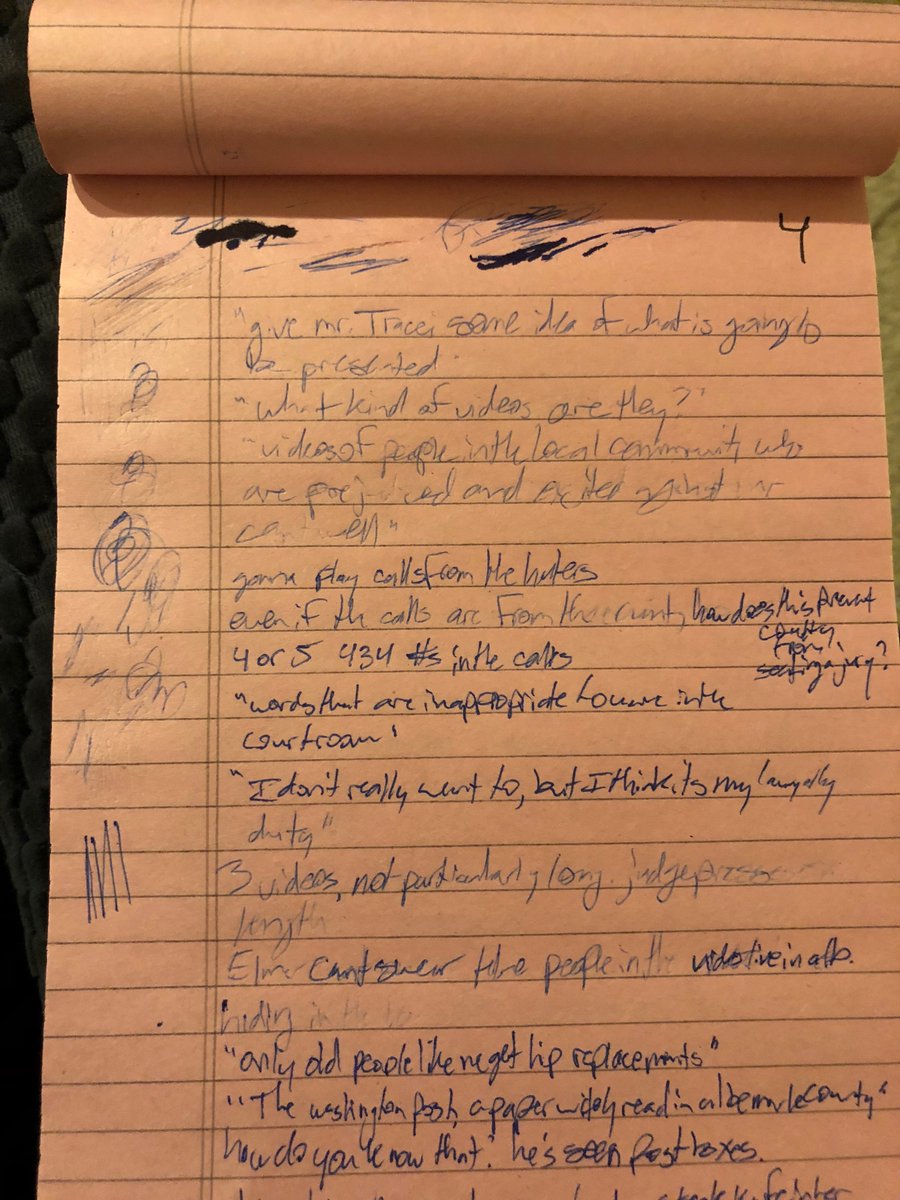 4
"give mr. Tracci some idea of what is going to
be presented"
"what kind of videos are they?"
"videos of people in the local community who
are prejudiced and excited against mr
cantwell"
gonna play calls from the haters
even if the calls are from the county, how does this prevent
county
from
seating a jury?
4 or 5 434 #s in the calls
"words that are inappropriate to use in the
courtroom"
"I don't really want to, but I think its my lawyerly
duty"
3 videos, not particularly long. judge presses
length
Elmer cant swear the people in the video live in alb.
hiding in the
"only old people like me get hip replacements"
"The washington post, a paper widely read in albemarle county"
how do you know that? he's seen post boxes.